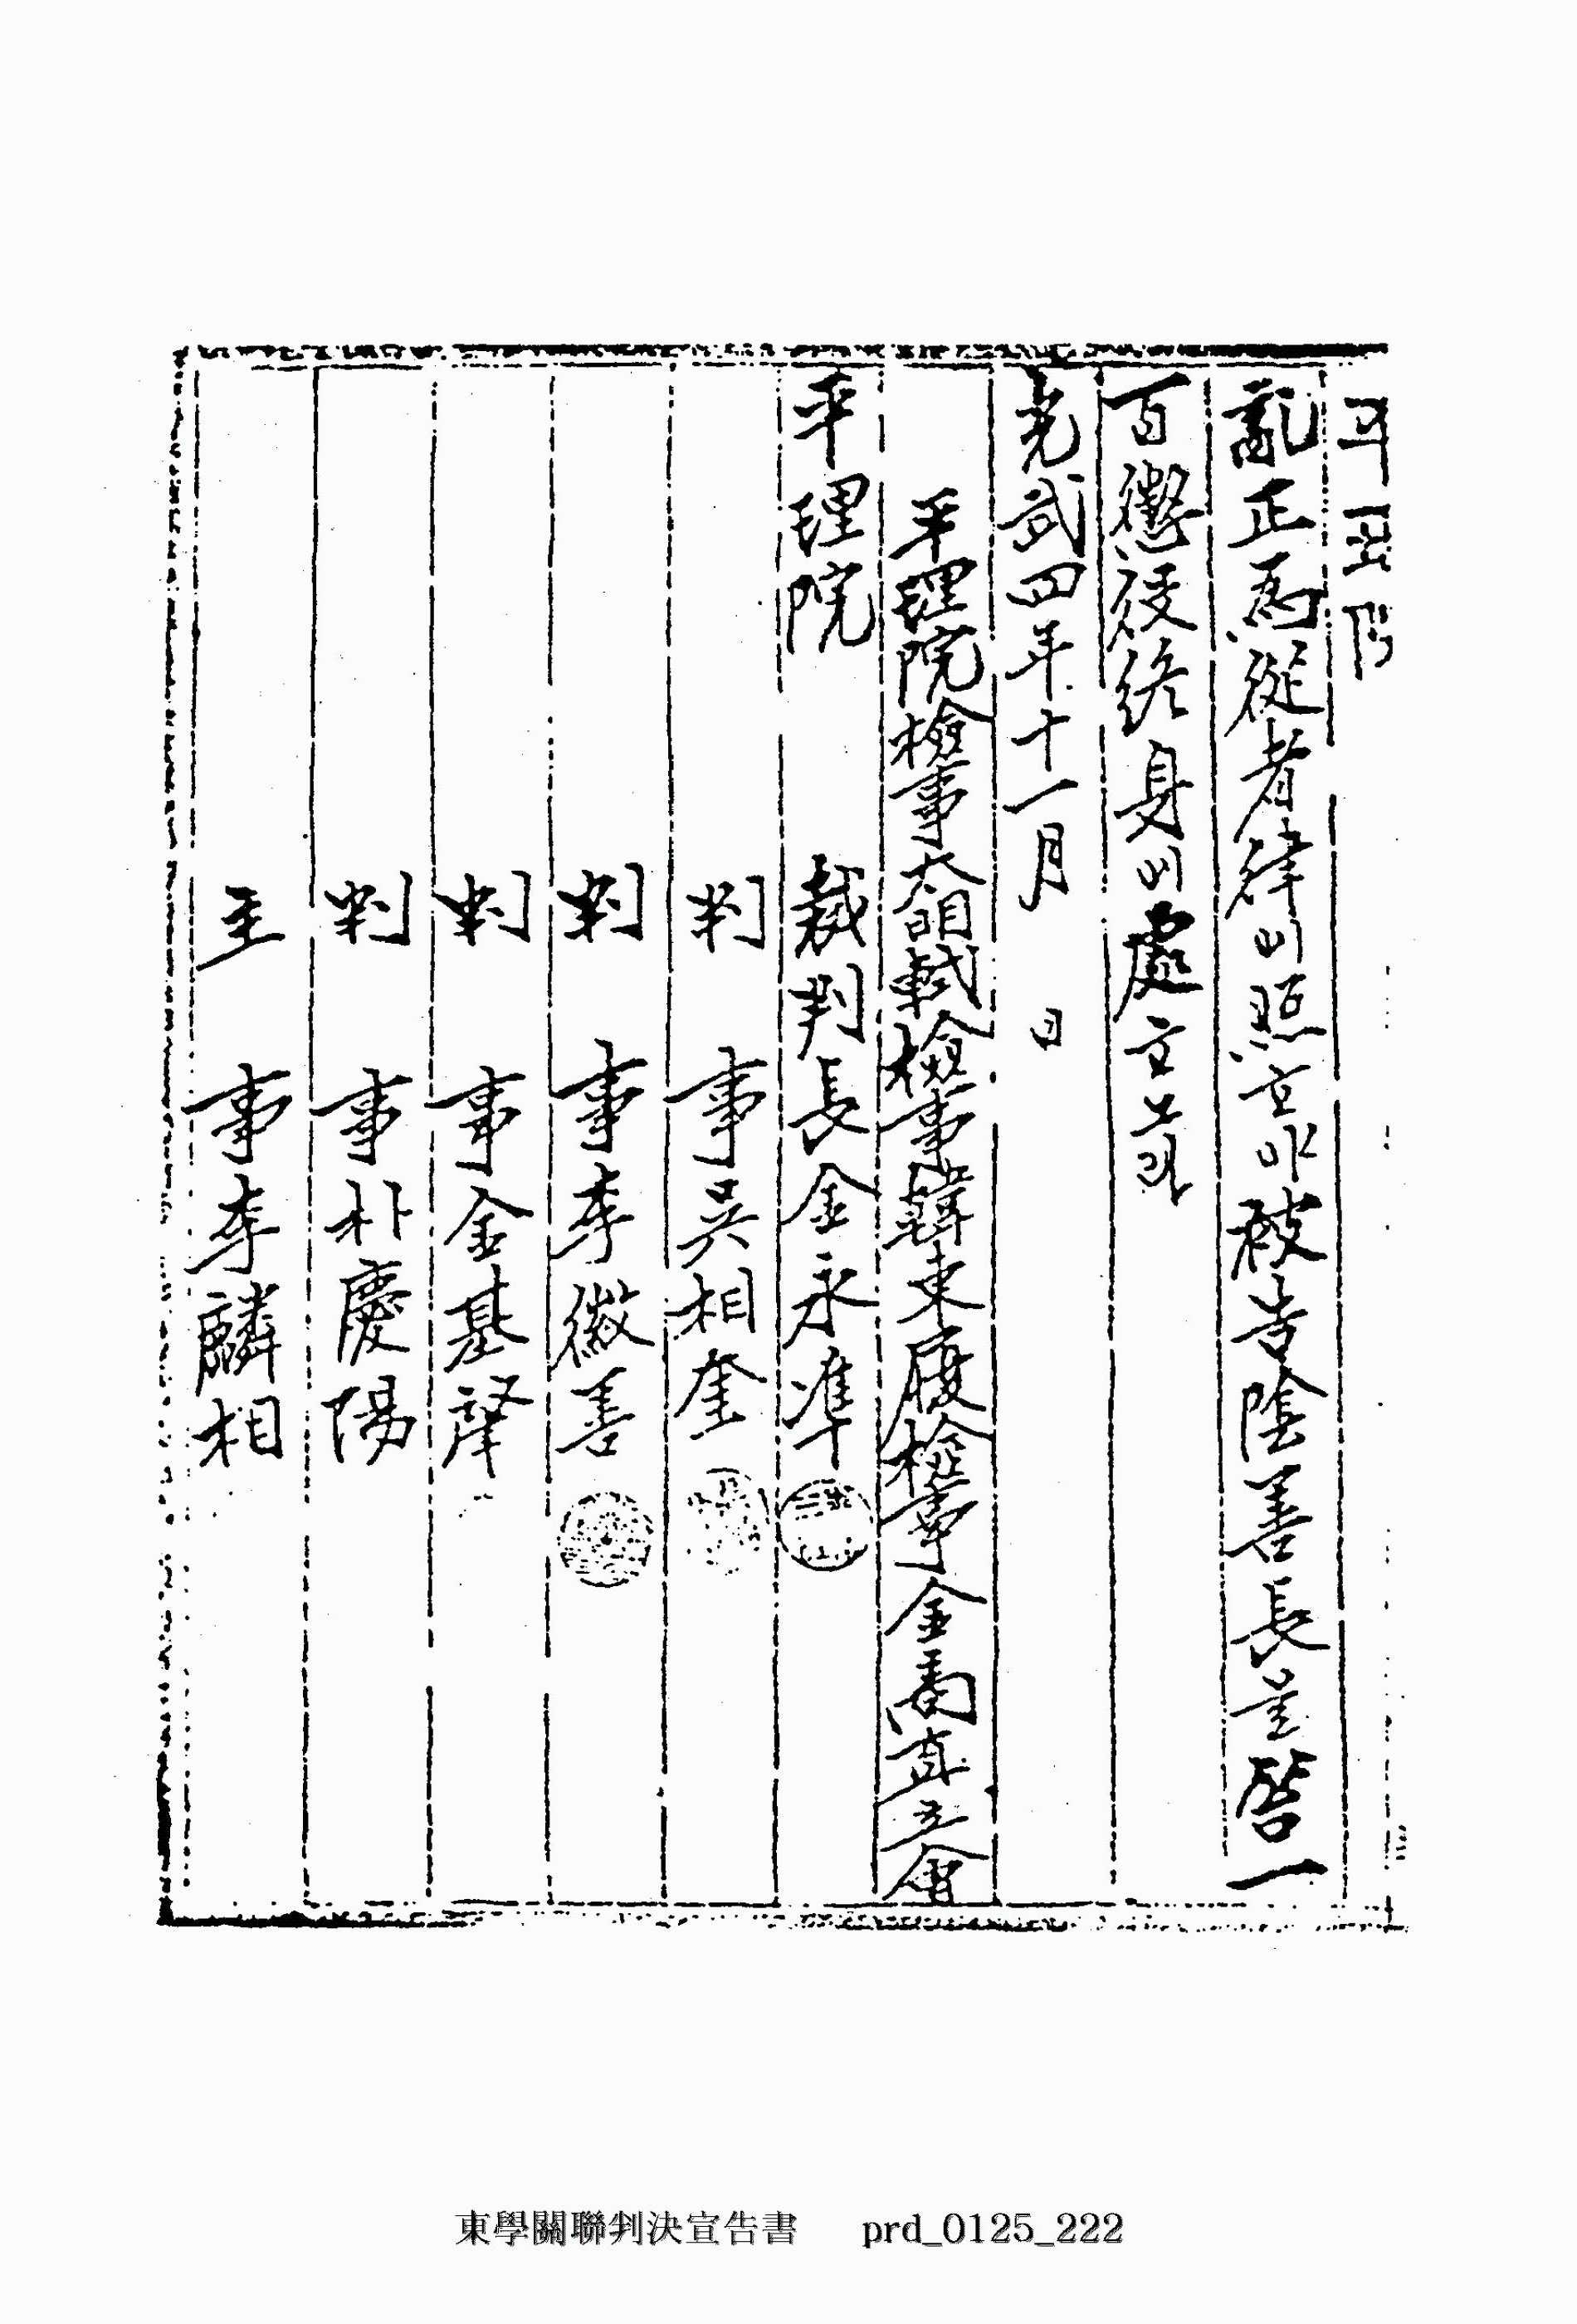 平理院
亂正爲從者律에照하야被告陰善長을笞一
百懲役終身에處하노라
光武四年十一月 日
平理院檢事太明軾檢事韓東履檢事金商直立會
平理院 裁判長金永準
判事吳相奎
判事李徽善
判事金基肇
判事朴慶陽
主事李麟相
東學關聯判決宣告書 prd_0125_222